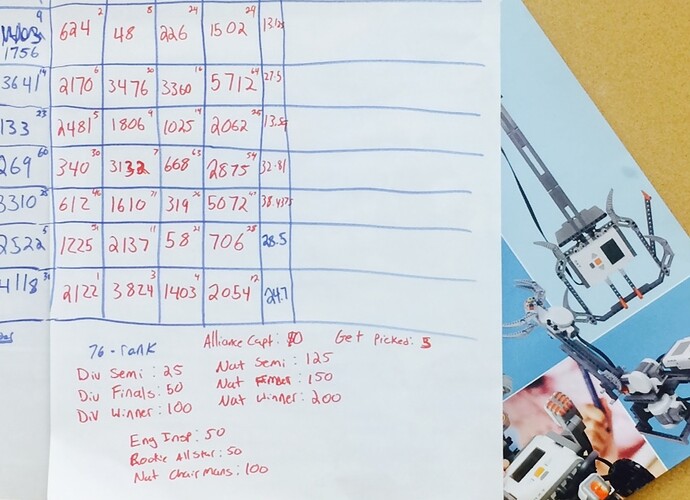 9 624 2 48 8 226 24 1502 29 13.125
1756
3641 14 2170 6 3476 30 3360 16 5712 64 27.5
133 23 2481 5 1806 9 1025 14 2062 25
269 60 340 30 3132 7 668 63 2875 54 32.81
3310 612 1610 319 5072 38.4375
2522 5 1225 51 2137 11 58 21 706 28.5
4118 2122 1 3824 3 1403 4 2054 12 24.7
76-rank Alliance Capt: 10 Get Picked: 5
Div Semi: 25 Nat Semi: 125
Div Finals: 50 Nat 150
Div Winner: 100 Nat Winner: 200
Eng Insp: 50
Rookie Allstar: 50
Nat Chairmans: 100